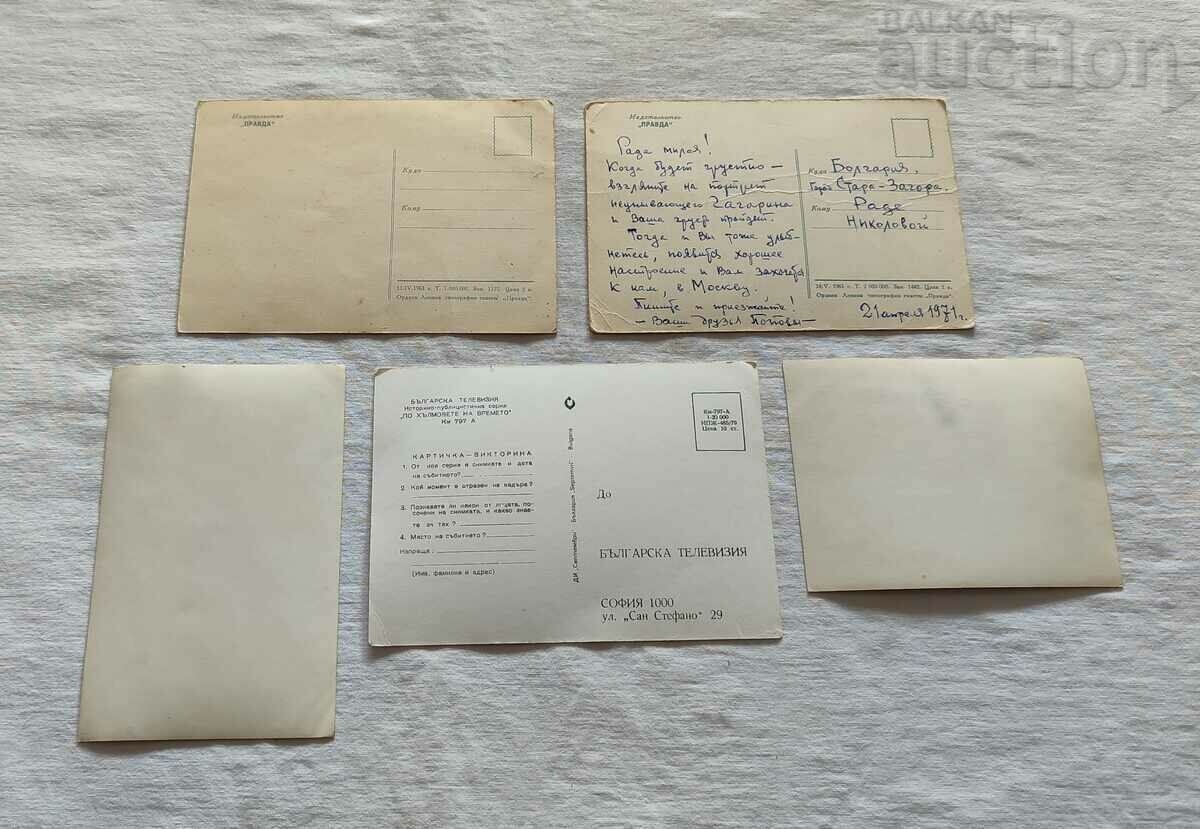 BALKAN
auction
Издательство
„ПРАВДА"
Куда
Кому
13/IV.1961 г. Т. 1 000 000. Зак. 1172. Цена 1 к.
Ордена Ленина типография газеты „Правда".
Издательство
„ПРАВДА"
Рада милая!
Когда будет грустно —
взгляните на портрет
неунывающего Гагарина
и Ваша грусть пройдет.
Тогда и Вы тоже улыб-
нетесь, появится хорошее
настроение и Вам захочется
к нам, в Москву.
Пишите и приезжайте!
— Ваши друзья Поповы —
Куда Болгария,
Город Стара-Загора.
Кому Раде
Николовой
1961 г. Т. 1 000 000. Зак. Цена 1 к.
Ордена Ленина типография газеты „Правда".
21 апреля 1971 г.
БЪЛГАРСКА ТЕЛЕВИЗИЯ
Историко-публицистична серия
„ПО ХЪЛМОВЕТЕ НА ВРЕМЕТО"
Км 797 А
КАРТИЧКА—ВИКТОРИНА
1. От коя серия е снимката и дата
на събитието?
2. Кой момент е отразен на кадъра?
3. Познавате ли някои от лицата, по-
сочени на снимката, и какво знае-
те за тях?
4. Място на събитието?
Направил:
(Име, фамилия и адрес)
ДИ „Септември" България „Septemvri" Bulgaria
Км-797-А
1-20 000
НПЖ-485/79
Цена 10 ст.
До
БЪЛГАРСКА ТЕЛЕВИЗИЯ
СОФИЯ 1000
ул. „Сан Стефано" 29